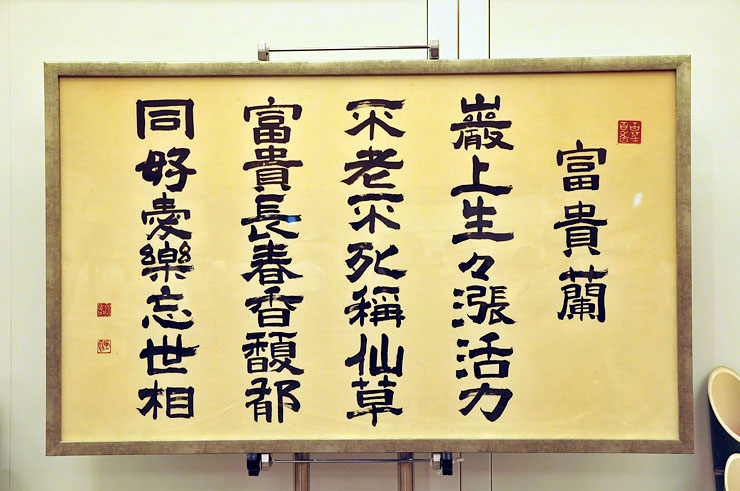 富貴蘭
巖上生々漲活力
不老不死稱仙草
富貴長春香馥郁
同好愛樂忘世相